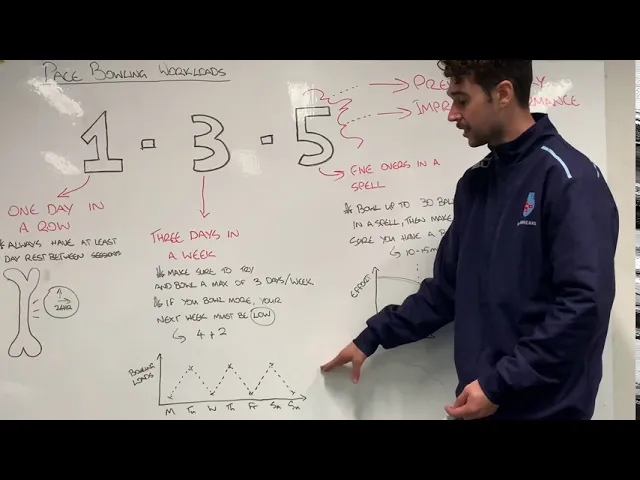 PACE BOWLING WORKLOADS
1 - 3 - 5
ONE DAY IN
A ROW
* ALWAYS HAVE AT LEAST
DAY REST BETWEEN SESSIONS
24HR
THREE DAYS IN
A WEEK
* MAKE SURE TO TRY
AND BOWL A MAX OF 3 DAYS/WEEK
* IF YOU BOWL MORE, YOUR
NEXT WEEK MUST BE LOW
4 + 2
BOWLING
LOADS
M Tu W Th Fr Sa Su
FIVE OVERS IN A
SPELL
* BOWL UP TO 30
IN A SPELL, THEN MAKE
SURE YOU HAVE A
10-15
EFFORT